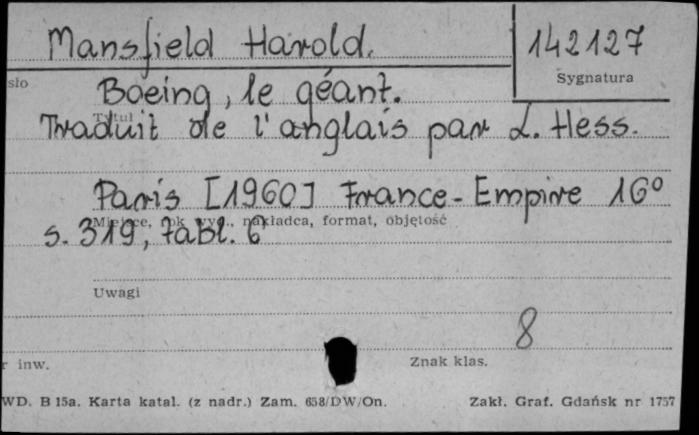 Mansfield Harold.
142127
Sygnatura
sło
Boeing, le géant.
Tytuł
Traduit de l'anglais par L. Hess.
Paris [1960] France-Empire 16°
Miejsce, rok wyd., nakładca, format, objętość
s. 319, tabl. 6
Uwagi
8
r inw.
Znak klas.
WD. B 15a. Karta katal. (z nadr.) Zam. 658/DW/On.
Zakł. Graf. Gdańsk nr 1757